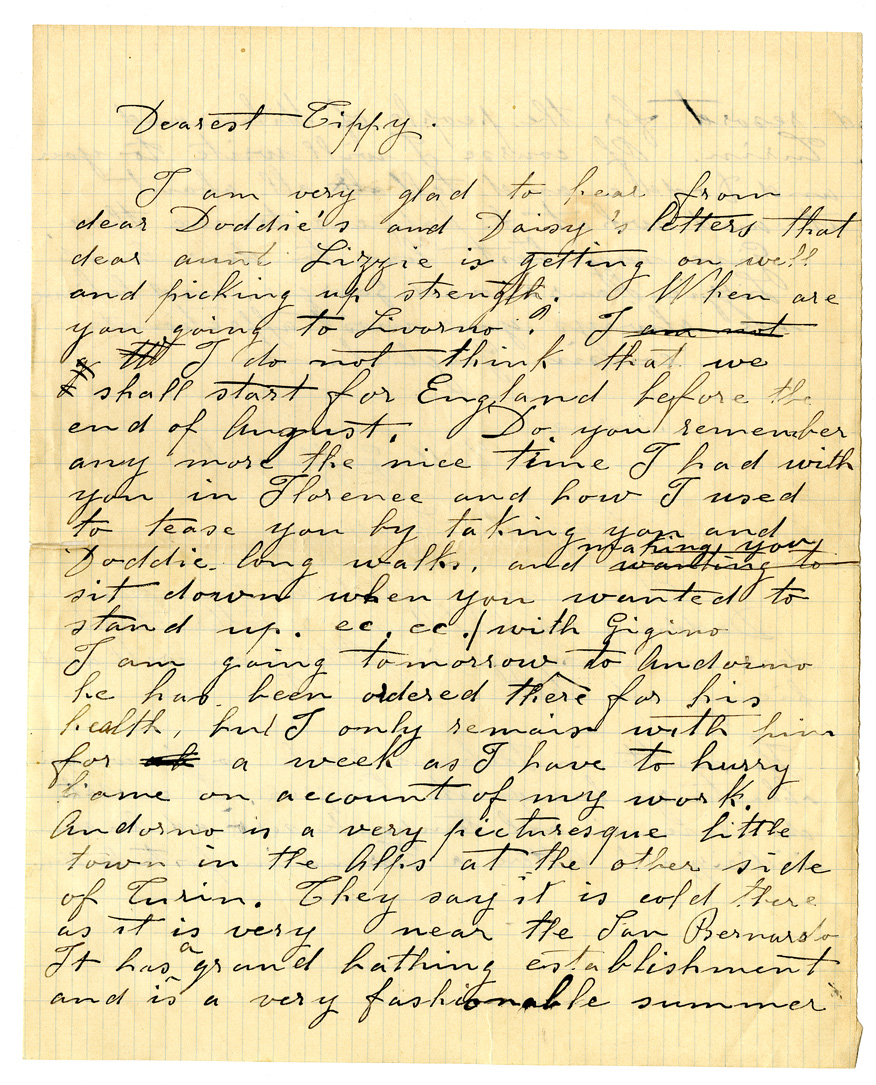 Dearest Tippy.
I am very glad to hear from
dear Doddie's and Daisy's letters that
dear aunt Lizzie is getting on well
and picking up strength. When are
you going to Livorno? I am not
I do not think that we
shall start for England before the
end of August. Do you remember
any more the nice time I had with
you in Florence and how I used
to tease you by taking you and
making you
Doddie long walks, and wanting to
sit down when you wanted to
stand up. ec. ec. / with Gigino
I am going tomorrow to Andorno
he has been ordered there for his
health, but I only remain with him
for a week as I have to hurry
home on account of my work.
Andorno is a very picturesque little
town in the Alps at the other side
of Turin. They say it is cold there
as it is very near the San Bernardo
It has a grand bathing establishment
and is a very fashionable summer